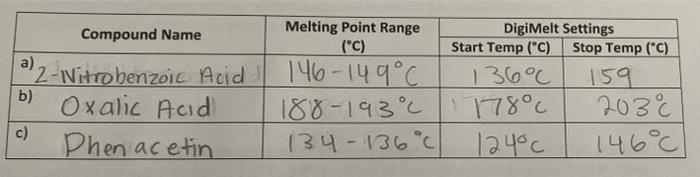 Compound Name Melting Point Range (°C) DigiMelt Settings
Start Temp (°C) Stop Temp (°C)
a) 2-Nitrobenzoic Acid 146-149°C 136°C 159
b) Oxalic Acid 188-193°C 178°C 203°C
c) Phenacetin 134-136°C 124°C 146°C